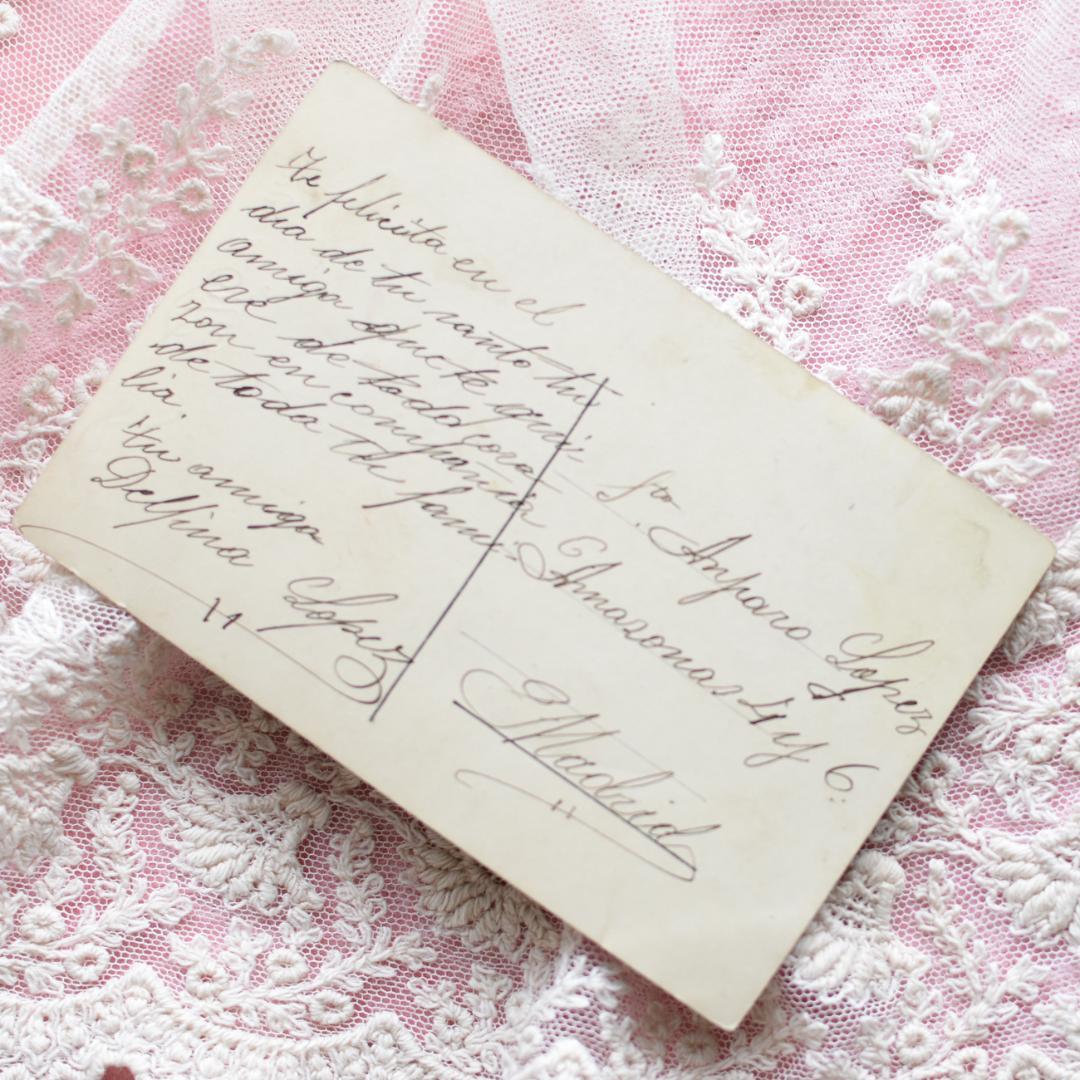 Te felicita en el
dia de tu santo tu
amiga que te quie
ere de todo cora
zon en compania
de toda tu fami-
lia.
Tu amiga
Delfina
Lopez
Sr.
Amparo Lopez
Amazonas 4 y 6:
Madrid